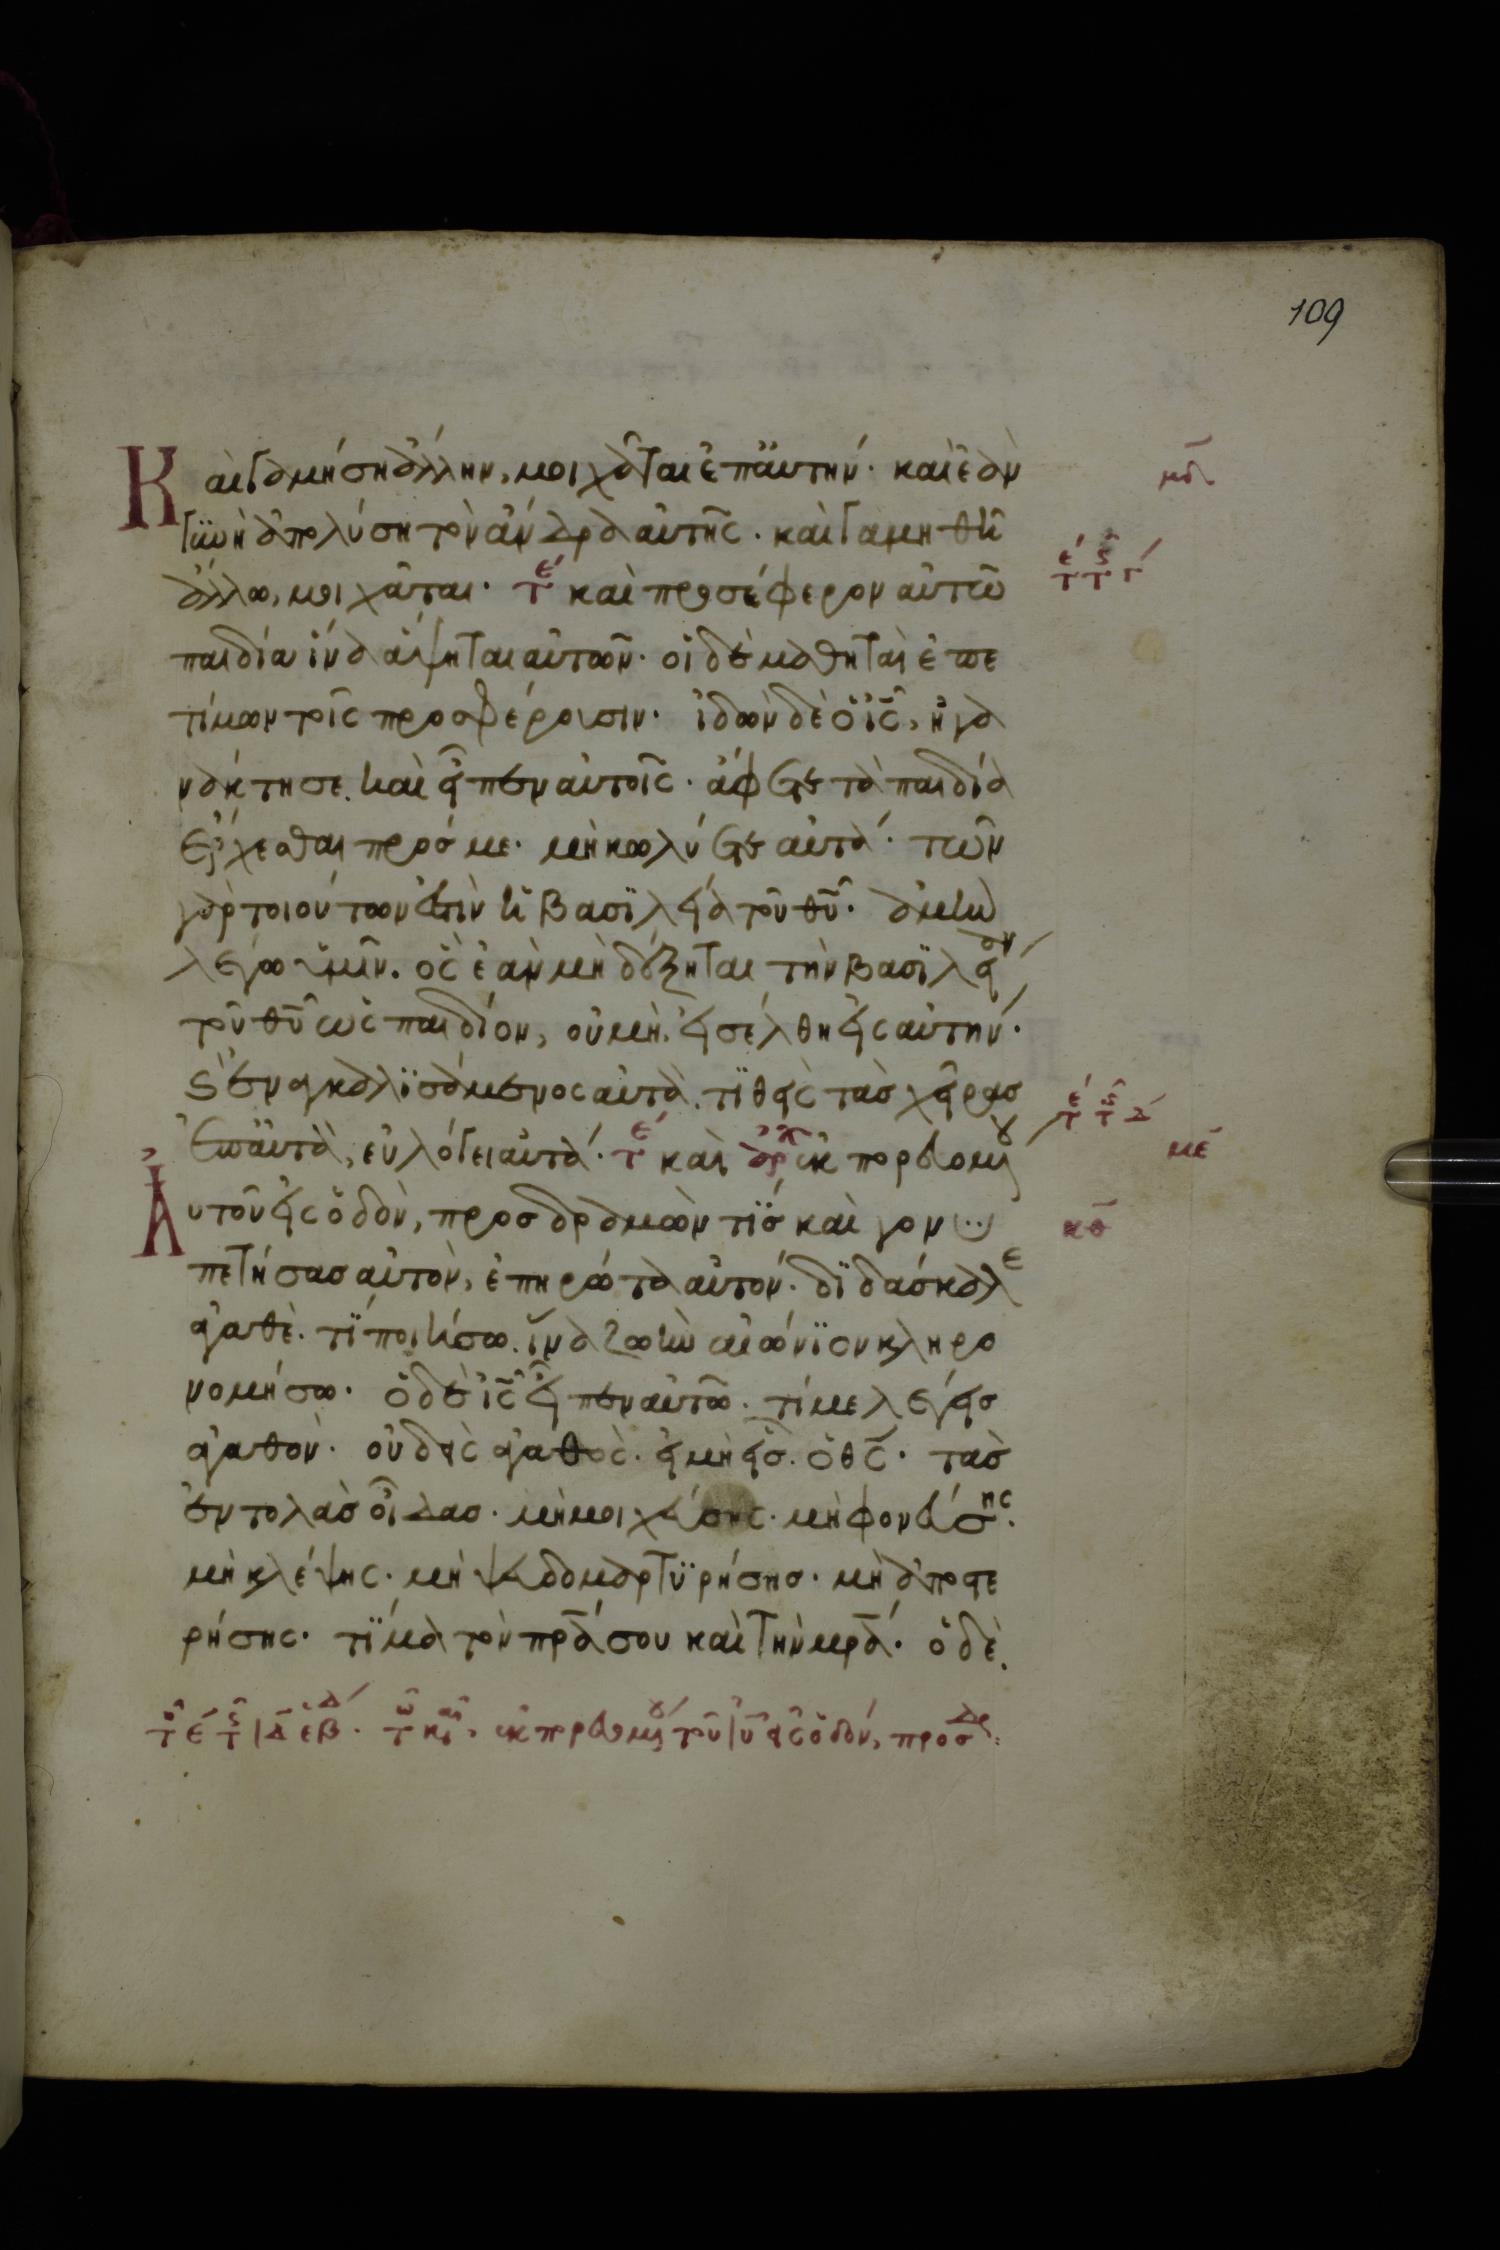 109
Καὶ γαμήση ἄλλην, μοιχᾶται ἐπ αὐτήν· καὶ ἐὰν
γυνὴ ἀπολύση τὸν ἄνδρα αὐτῆς· καὶ γαμηθῆ
ἄλλω, μοιχᾶται· τε καὶ προσέφερον αὐτῶ
παιδία ἵνα ἅψηται αὐτῶν· οἱ δὲ μαθηταὶ ἐπε
τίμων τοῖς προσφέρουσιν· ἰδὼν δὲ ὁ ις, ἠγα
νάκτησε. καὶ εἶπεν αὐτοῖς· ἄφετε τὰ παιδία
ἔρχεσθαι πρός με· μὴ κωλύετε αὐτά· τῶν
γὰρ τοιούτων ἐστὶν ἡ βασϊλεία τοῦ θυ· ἀμὴν
λέγω ὑμῖν. ὃς ἐὰν μὴ δέξηται τὴν βασϊλείαν
τοῦ θυ ὡς παιδίον, οὐ μὴ εἰσέλθη εἰς αὐτήν·
ϛ ἐναγκαλϊσάμενος αὐτὰ. τϊθεὶς τὰς χεῖρας
ἐπ αὐτὰ, εὐλόγει αὐτά· τε καὶ αρχ ἐκπορευομένου
Αὐτοῦ εἰς ὁδὸν, προσδραμὼν τϊς καὶ γονυ
πετήσας αὐτὸν, ἐπηρώτα αὐτόν· δϊδάσκαλε
ἀγαθὲ. τϊ ποιήσω. ἵνα ζωὴν αἰώνϊον κληρο
νομήσω· ὁ δὲ ις εἶπεν αὐτῶ· τί με λέγεις
ἀγαθὸν· οὐδεὶς ἀγαθὸς· εἰ μὴ εἷς. ὁ θς· τὰς
ἐντολὰς οἶδας· μὴ μοιχεύσης· μὴ φονεύσης·
μὴ κλέψης· μὴ ψευδομαρτϋρήσης· μὴ ἀποστε
ρήσης· τϊμα τὸν πρα σου καὶ τὴν μρα· ὁ δὲ
μδ
με
κθ